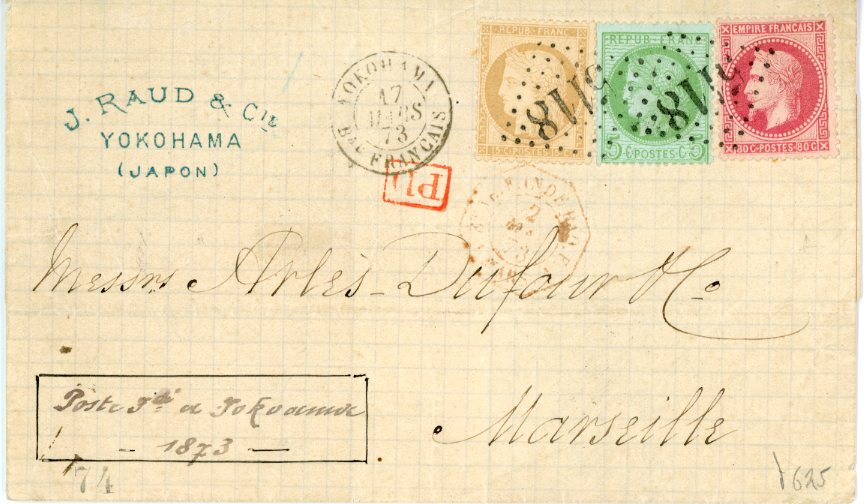 J. RAUD & Cie
YOKOHAMA
(JAPON)
YOKOHAMA
17
MARS
73
Bau FRANÇAIS
REPUB. FRANC.
15 C. POSTES 15 C.
REPUB. FRANC.
5 C. POSTES C. 5
EMPIRE FRANÇAIS
80 C. POSTES 80 C.
5118
5118
PD
2
Messrs Arlès-Dufour & Co
Marseille
Poste
a Yokoama
- 1873 -
74
625